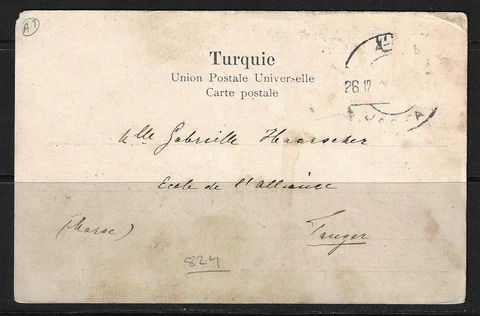 A-T
Turquie
Union Postale Universelle
Carte postale
26 12
Mlle Gabrielle Haarscher
Ecole de l'Alliance
Tanger
(Maroc)
824